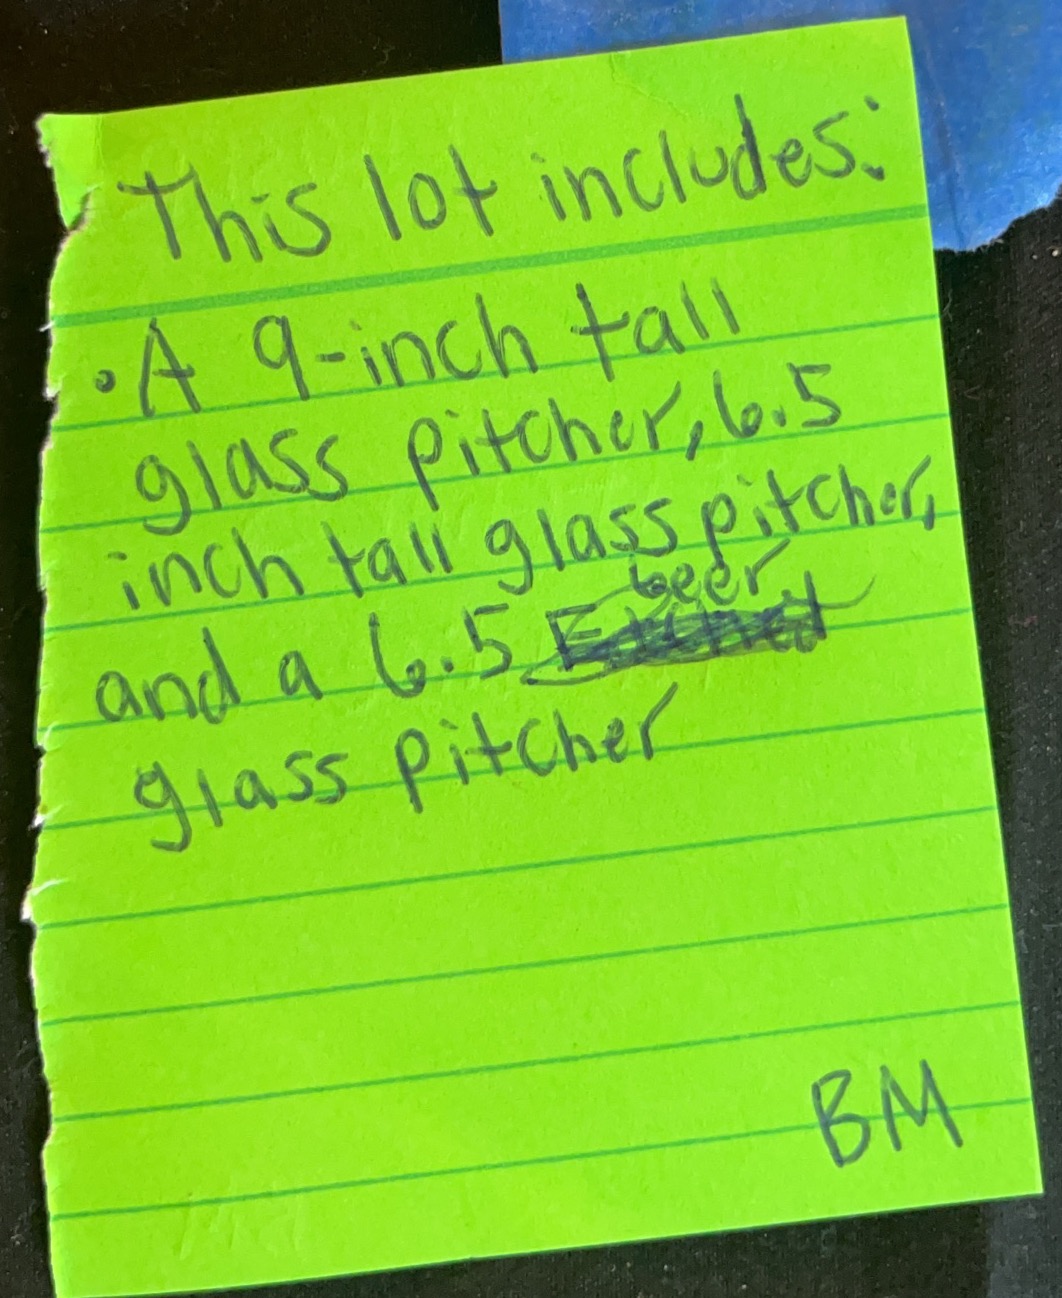 This lot includes:
• A 9-inch tall
glass pitcher, 6.5
inch tall glass pitcher,
and a 6.5 beer
glass pitcher
BM